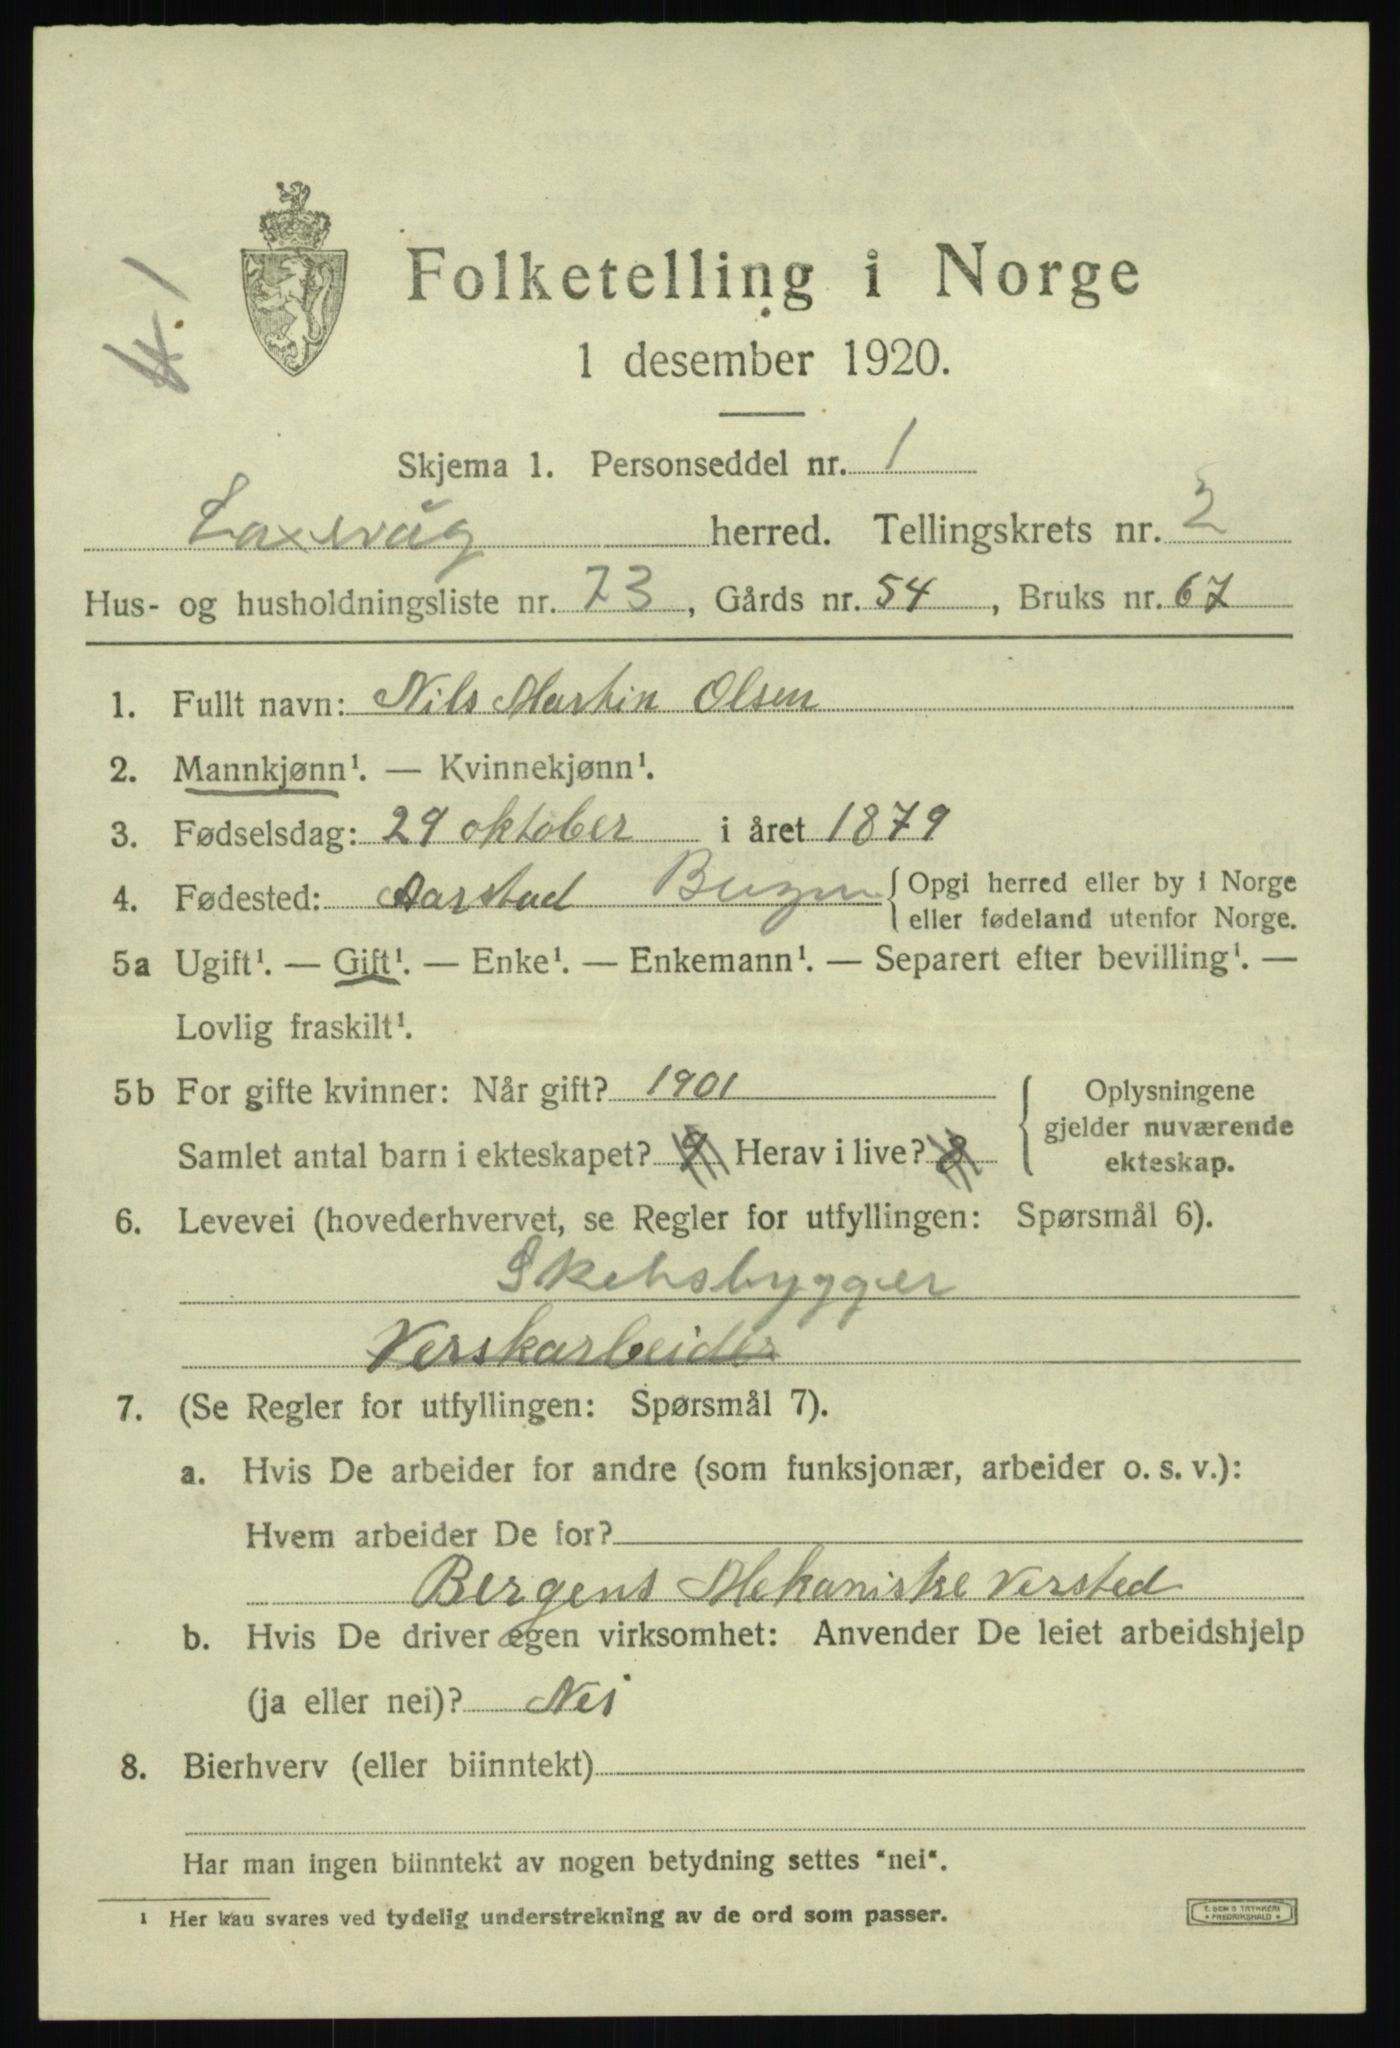 Folketelling i Norge
1 desember 1920.
Skjema 1. Personseddel nr. 1
Laxevåg herred. Tellingskrets nr. 2
Hus- og husholdningsliste nr. 73, Gårds nr. 54, Bruks nr. 67
1. Fullt navn: Nils Martin Olsen
2. Mannkjønn¹. — Kvinnekjønn¹.
3. Fødselsdag: 29 oktober i året 1879
4. Fødested: Aarstad Bergen {Opgi herred eller by i Norge
eller fødeland utenfor Norge.
5a Ugift¹. — Gift¹. — Enke¹. — Enkemann¹. — Separert efter bevilling¹. —
Lovlig fraskilt¹.
5b For gifte kvinner: Når gift? 1901
Samlet antal barn i ekteskapet? 9 Herav i live? 8
{ Oplysningene
gjelder nuværende
ekteskap.
6. Levevei (hovederhvervet, se Regler for utfyllingen: Spørsmål 6).
Skibsbygger
Verskarbeider
7. (Se Regler for utfyllingen: Spørsmål 7).
a. Hvis De arbeider for andre (som funksjonær, arbeider o. s. v.):
Hvem arbeider De for?
Bergens Mekaniske Versted
b. Hvis De driver egen virksomhet: Anvender De leiet arbeidshjelp
(ja eller nei)? Nei
8. Bierhverv (eller biinntekt)
Har man ingen biinntekt av nogen betydning settes "nei".
¹ Her kan svares ved tydelig understrekning av de ord som passer.